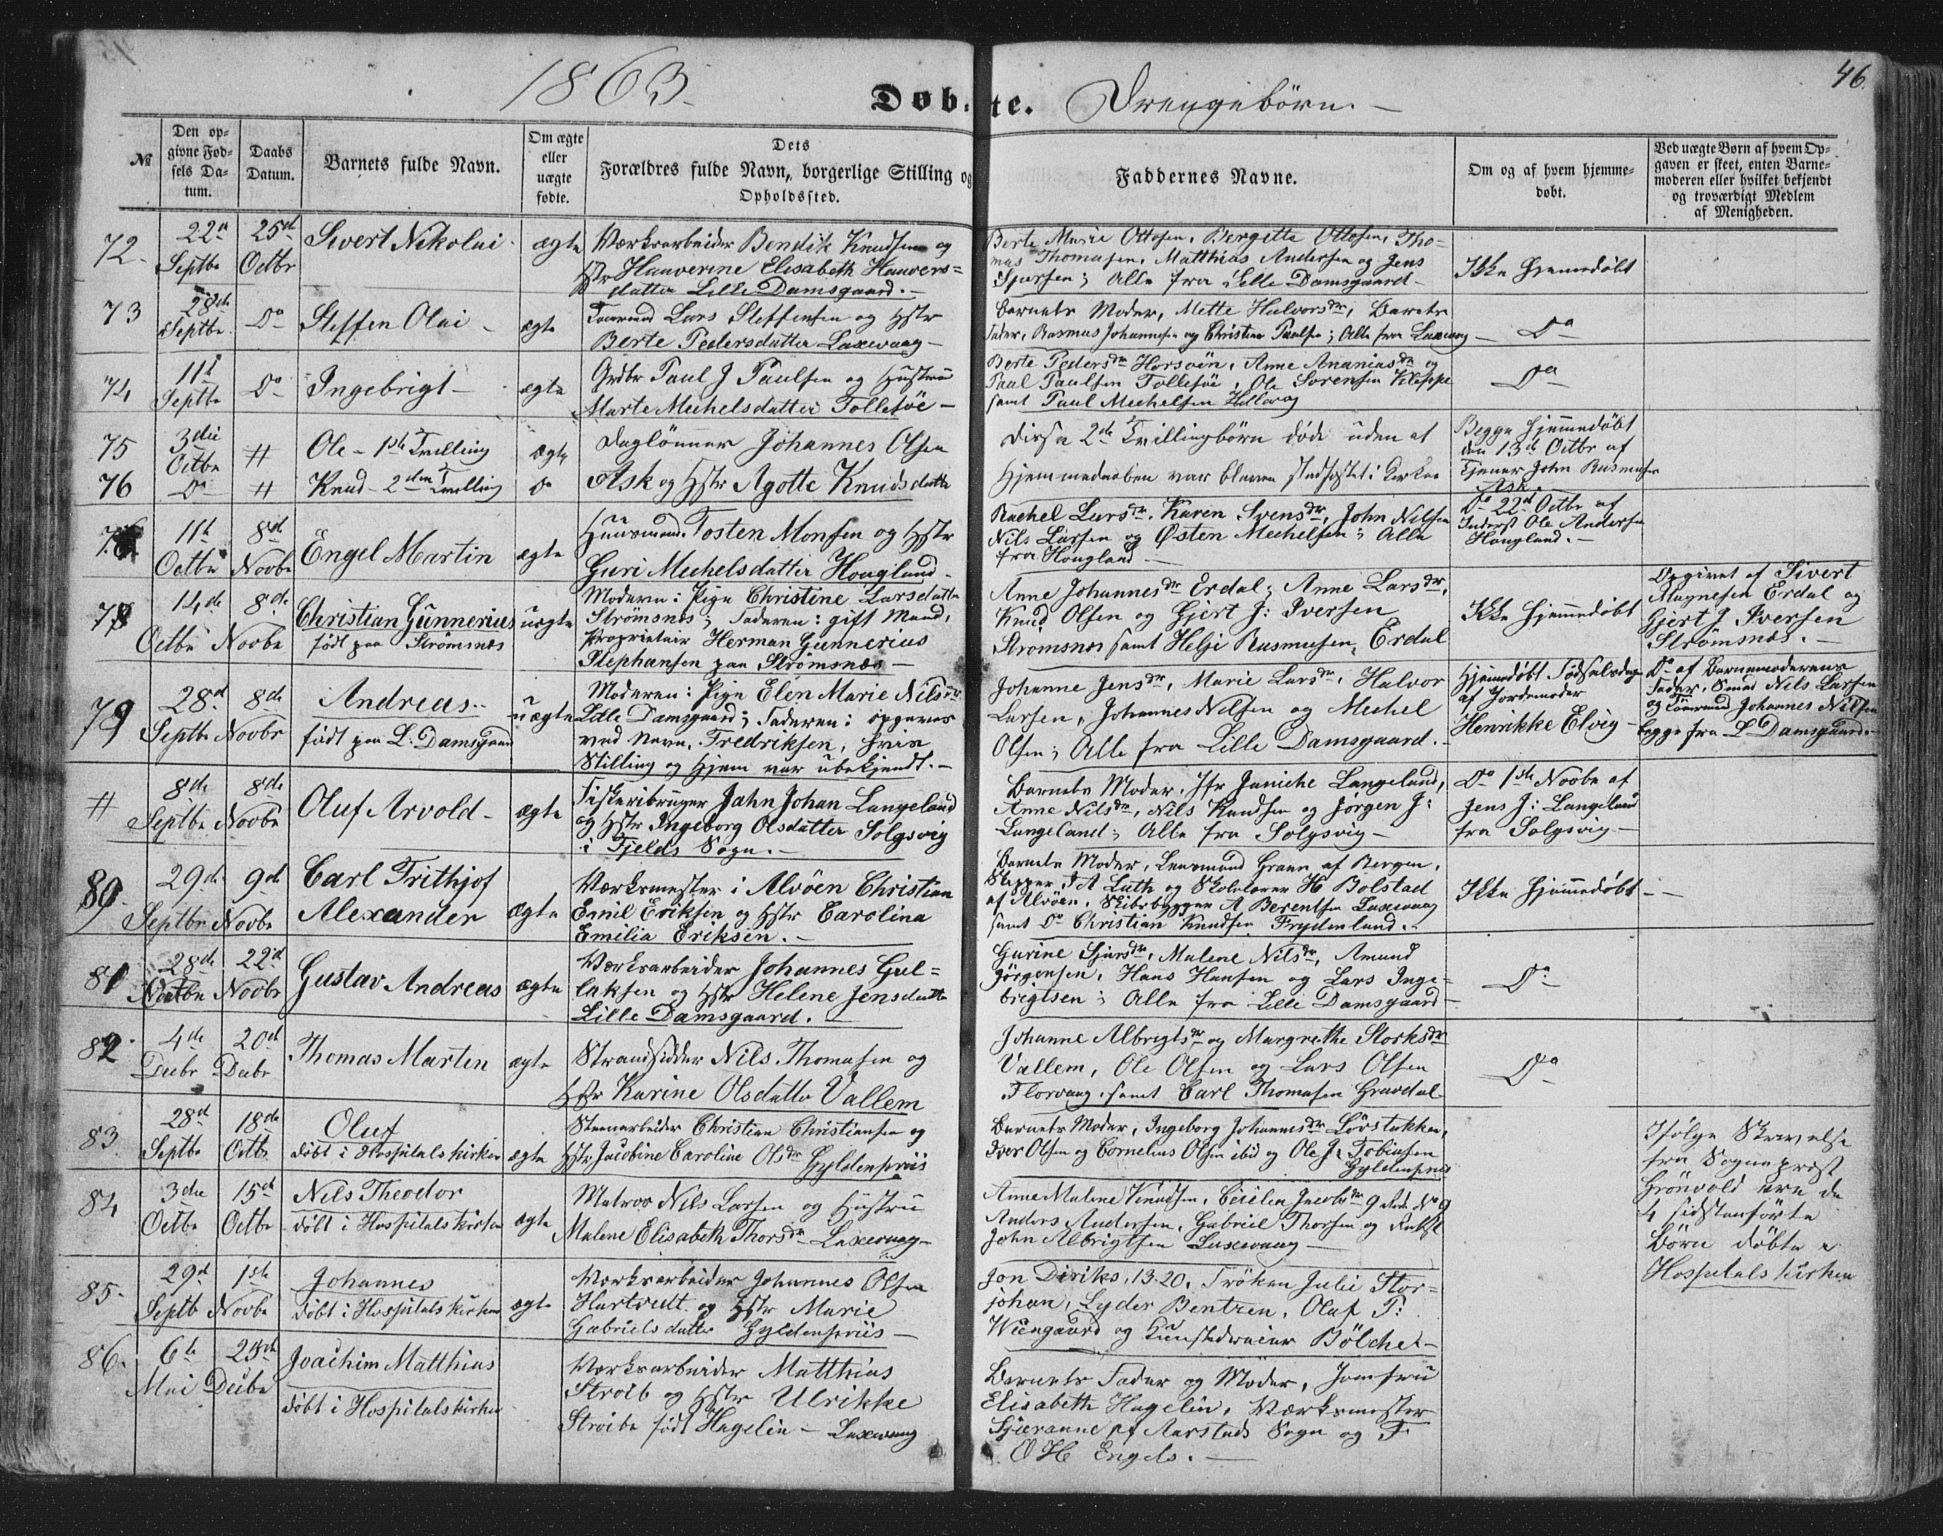 46.
1863. Døbte. Drengebørn. —
№ | Den opgivne Fødsels Datum. | Daabs Datum. | Barnets fulde Navn. | Om ægte eller uægte fødte. | Dets Forældres fulde Navn, borgerlige Stilling og Opholdssted. | Faddernes Navne. | Om og af hvem hjemmedøbt. | Ved uægte Børn af hvem Opgaven er skeet, enten Barnemoderen eller hvilket bekjendt og troværdigt Medlem af Menigheden.
72. 22d Septbr 25d Octbr Sivert Nikolai. ægte
Værksarbeider Bendik Knudsen og
Hstr Hanverine Elisabeth Hanvers=
datter Lille Damsgaard. —
Berte Marie Ottesen, Bergette Ottesen, Tho-
mas Thomasen, Matthias Andersen og Jens
Sjursen; Alle fra Lille Damsgaard —
Ikke hjemmedøbt
73 28de Septbr. Do Steffen Olai — ægte
Lars Steffensen og Hstr
Berte Pedersdatter Laxevaag —
Barnets Moder, Mette Halvorsdr, Barnets
Fader, Rasmus Johannesen og Christian Paulsen; Alle fra Laxevaag —
Do —
74 11t Septbr Do Ingebrigt — ægte
Grdbr Paul J Paulsen og Hustru
Marte Mechelsdatter Tollesøe —
Berte Pedersdr Horsøen, Anne Ananiasdr og
Paul Paulsen Tollesøe, Ole Sørensen Kleppe
samt Paul Mechelsen
Do —
75 3die Octbr # Ole — 1ste Tvilling ægte
76 Do # Knud — 2den Tvilling Do
Daglønner Johannes Olsen
Ask og Hstr Agotte Knudsdatter
Disse 2de Tvillingbørn døde uden at
Hjemmedaaben var bleven stadfæstet i Kirken
Begge hjemmedøbt
den 13de Octbr af
Tjener John Rasmusen
Ask.
11t Octbr 8de Novbr Engel Martin ægte
Huusmand Tosten Monsen og Hstr
Guri Mechelsdatter Hougland —
Rachel Larsdr, Karen Svensdr, John Nilsen
Nils Larsen og Østen Mechelsen; Alle
fra Hougland —
Do 22d Octbr af
Inderst Ole Andersen
Hougland. —
78 14de Octbr 8de Novbr Christian Gunnerius
født paa Strømsnæs uægte
Moderen: Pige Christine Larsdatter
Strømsnæs; Faderen: gift Mand,
Proprietair Herman Gunnerius
Stephansen paa Strømsnæs —
Anne Johannesdr Erdal; Anne Larsdr,
Knud Olsen og Gjert J: Iversen
Strømsnæs samt Helje Rasmusen, Erdal
Ikke hjemmedøbt
Opgivet af Sivert
Magnesen Erdal og
Gjert J Iversen
Strømsnæs. —
79 28d Septbr 8de Novbr Andreas.
født paa L. Damsgaard uægte
Moderen: Pige Elen Marie Nilsdr
Lille Damsgaard; Faderen: opgaves
ved Navn, Fredriksen, hvis
Stilling og Hjem var ubekjendt. —
Johanne Jensdr, Marie Larsdr, Halvor
Larsen, Johannes Nilsen og Mechel
Olsen; Alle fra Lille Damsgaard. —
Hjemmedøbt Fødselsdagen
af Jordemoder
Henrikke Elvig —
Do af Barnemoderens
Fader, Smed Nils Larsen
og Johannes Nilsen
begge fra L Damsgaard. —
# 8de Septbr 8de Novbr Oluf Arvold — ægte
Fiskeribruger Jahn Johan Langeland
og Hstr Ingeborg Olsdatter Solgsvig
i Fjelds Sogn. —
Barnets Moder, Janiche Langeland,
Anne Nilsdr, Nils Knudsen og Jørgen J:
Langeland; Alle fra Solgsvig —
Do 1ste Novbr af
Jens J: Langeland
fra Solgsvig —
80. 29de Septbr 9de Novbr Carl Frithjof
Alexander ægte
Værksmester i Alvøen Christian
Emil Eriksen og Hstr Carolina
Emilia Eriksen. —
Barnets Moder, af Bergen,
Skipper J A Luth og Skolelærer H Bolstad
af Alvøen, Skibsbygger A Berentsen Laxevaag
samt Do Christian Knudsen Frydenlund. —
Ikke hjemmedøbt —
81 28de 22d Novbr Gustav Andreas ægte
Værksarbeider Johannes Gul=
laksen og Hstr Helene Jensdatter
Lille Damsgaard. —
Gurine Sjursdr, Malene Nilsdr, Amund
Jørgensen, Hans Hansen og Lars Inge-
brigtsen; Alle fra Lille Damsgaard —
Do —
82 4de Decbr 20d Decbr Thomas Marten ægte
Strandsidder Nils Thomasen og
Hstr Karine Olsdatter Vallem
Johanne Albrigtsdr og Margrethe Storksdr
Vallem, Ole Olsen og Lars Olsen
Florvaag, samt Carl Thomasen Gravdal
Do —
83. 28d Septbr 18de Octbr Oluf
døbt i Hospitalskirken ægte
Steenarbeider Christian Christiansen og
Hstr Jacobine Caroline Olsdr Gyldenpriis
Barnets Moder, Ingeborg Johannesdr Løvstakken,
Iver Olsen og Cornelius Olsen ibid og Ole J: Tobiasen
Gyldenpriis
Ifølge Skrivelse
fra Sognepræst
Grönvold ere de
4 sidstanførte
Børn døbte i
Hospitalskirken
84 3die Octbr 15d Octbr Nils Theodor
døbt i Hospitalskirken ægte
Matros Nils Larsen og Hustru
Malene Elisabeth Thorsdr Laxevaag —
Anne Malene Knudsen, Jacobsdr
Anders Andersen, Gabriel Thorsen og
John Albrigtsen Laxevaag —
85. 29d Septb 1ste Novbr Johannes
døbt i Hospitalskirken ægte
Værksarbeider Johannes Olsen
Hartvedt og Hstr Marie
Gabrielsdatter Gyldenpriis —
Jon Diriks, 13-20, Frøken Julie Stor-
johan, Lyder Bentzen, Oluf P:
Wiengaard og Kunstdreier Bölche —
86. 6te Mai 25de Decbr Joachim Matthias
døbt i Hospitalskirken
Værksarbeider Matthias
Stroib og Hstr Ulrikke
Stroibe født Hagelin — Laxevaag
Barnets Fader og Moder, Jomfru
Elisabeth Hagelin, Værksmester
af Aarstads Sogn og F
O H Engels. —